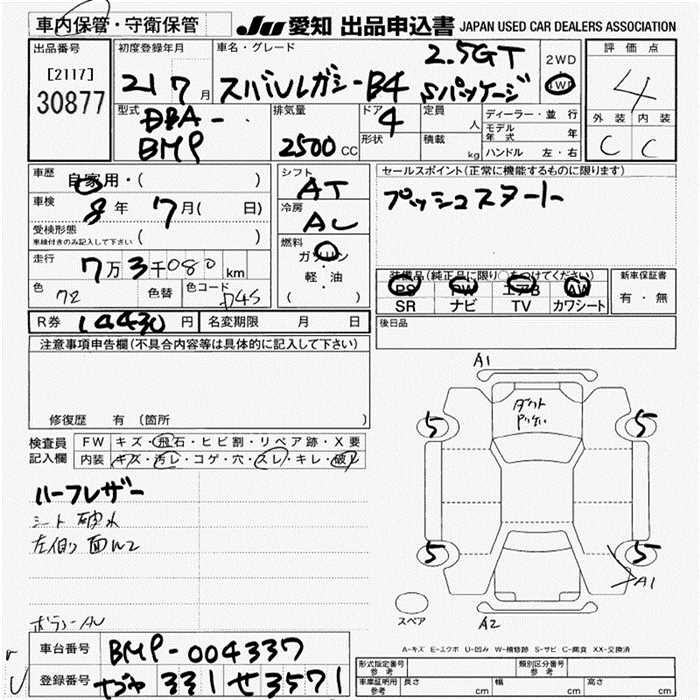 車内保管・守衛保管
JU 愛知 出品申込書 JAPAN USED CAR DEALERS ASSOCIATION
出品番号
[2117]
30877
初度登録年月
21 7 月
車名・グレード
2.5GT
スバルレガシーB4 Sパッケージ
2WD
4WD
評価点
4
外装 内装
C C
型式
DBA-
BMP
排気量
2500 CC
ドア
4
形状
定員
人
積載
kg
ディーラー・並行
モデル年式 年
ハンドル 左・右
車歴
自家用・( )
車検
8 年 7 月( 日)
受検形態
車検付きのみ記入して下さい ( )
走行
7万3千080 km
色
72
色替
色コード
D4S
シフト
AT
冷房
AC
燃料
ガソリン
・
軽・油
( )
セールスポイント(正常に機能するものに限ります)
プッシュスタート
装備品(純正品に限り○をつけてください)
PS PW エアB AW
SR ナビ TV カワシート
新車保証書
有・無
R券 14430 円
名変期限 月 日
後日品
注意事項申告欄(不具合内容等は具体的に記入して下さい)
修復歴 有(箇所
検査員
記入欄
FW キズ・飛石・ヒビ割・リペア跡・X要
内装 キズ・汚レ・コゲ・穴・スレ・キレ・破レ
ハーフレザー
シート 破れ
左
A1
ダクト
5 5
5 5
A1
スペア
A2
A-キズ E-エクボ U-凹み W-補修跡 S-サビ C-腐食 XX-交換済
車台番号
BMP-004337
登録番号
331 せ 3571
形式指定番号
参考
類別区分番号
参考
車庫証明用
参考
長さ cm
幅 cm
高さ cm